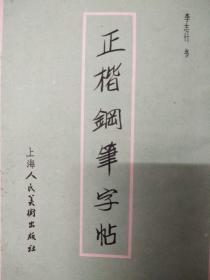 李志行 书
正楷鋼筆字帖
上海人民美術出版社